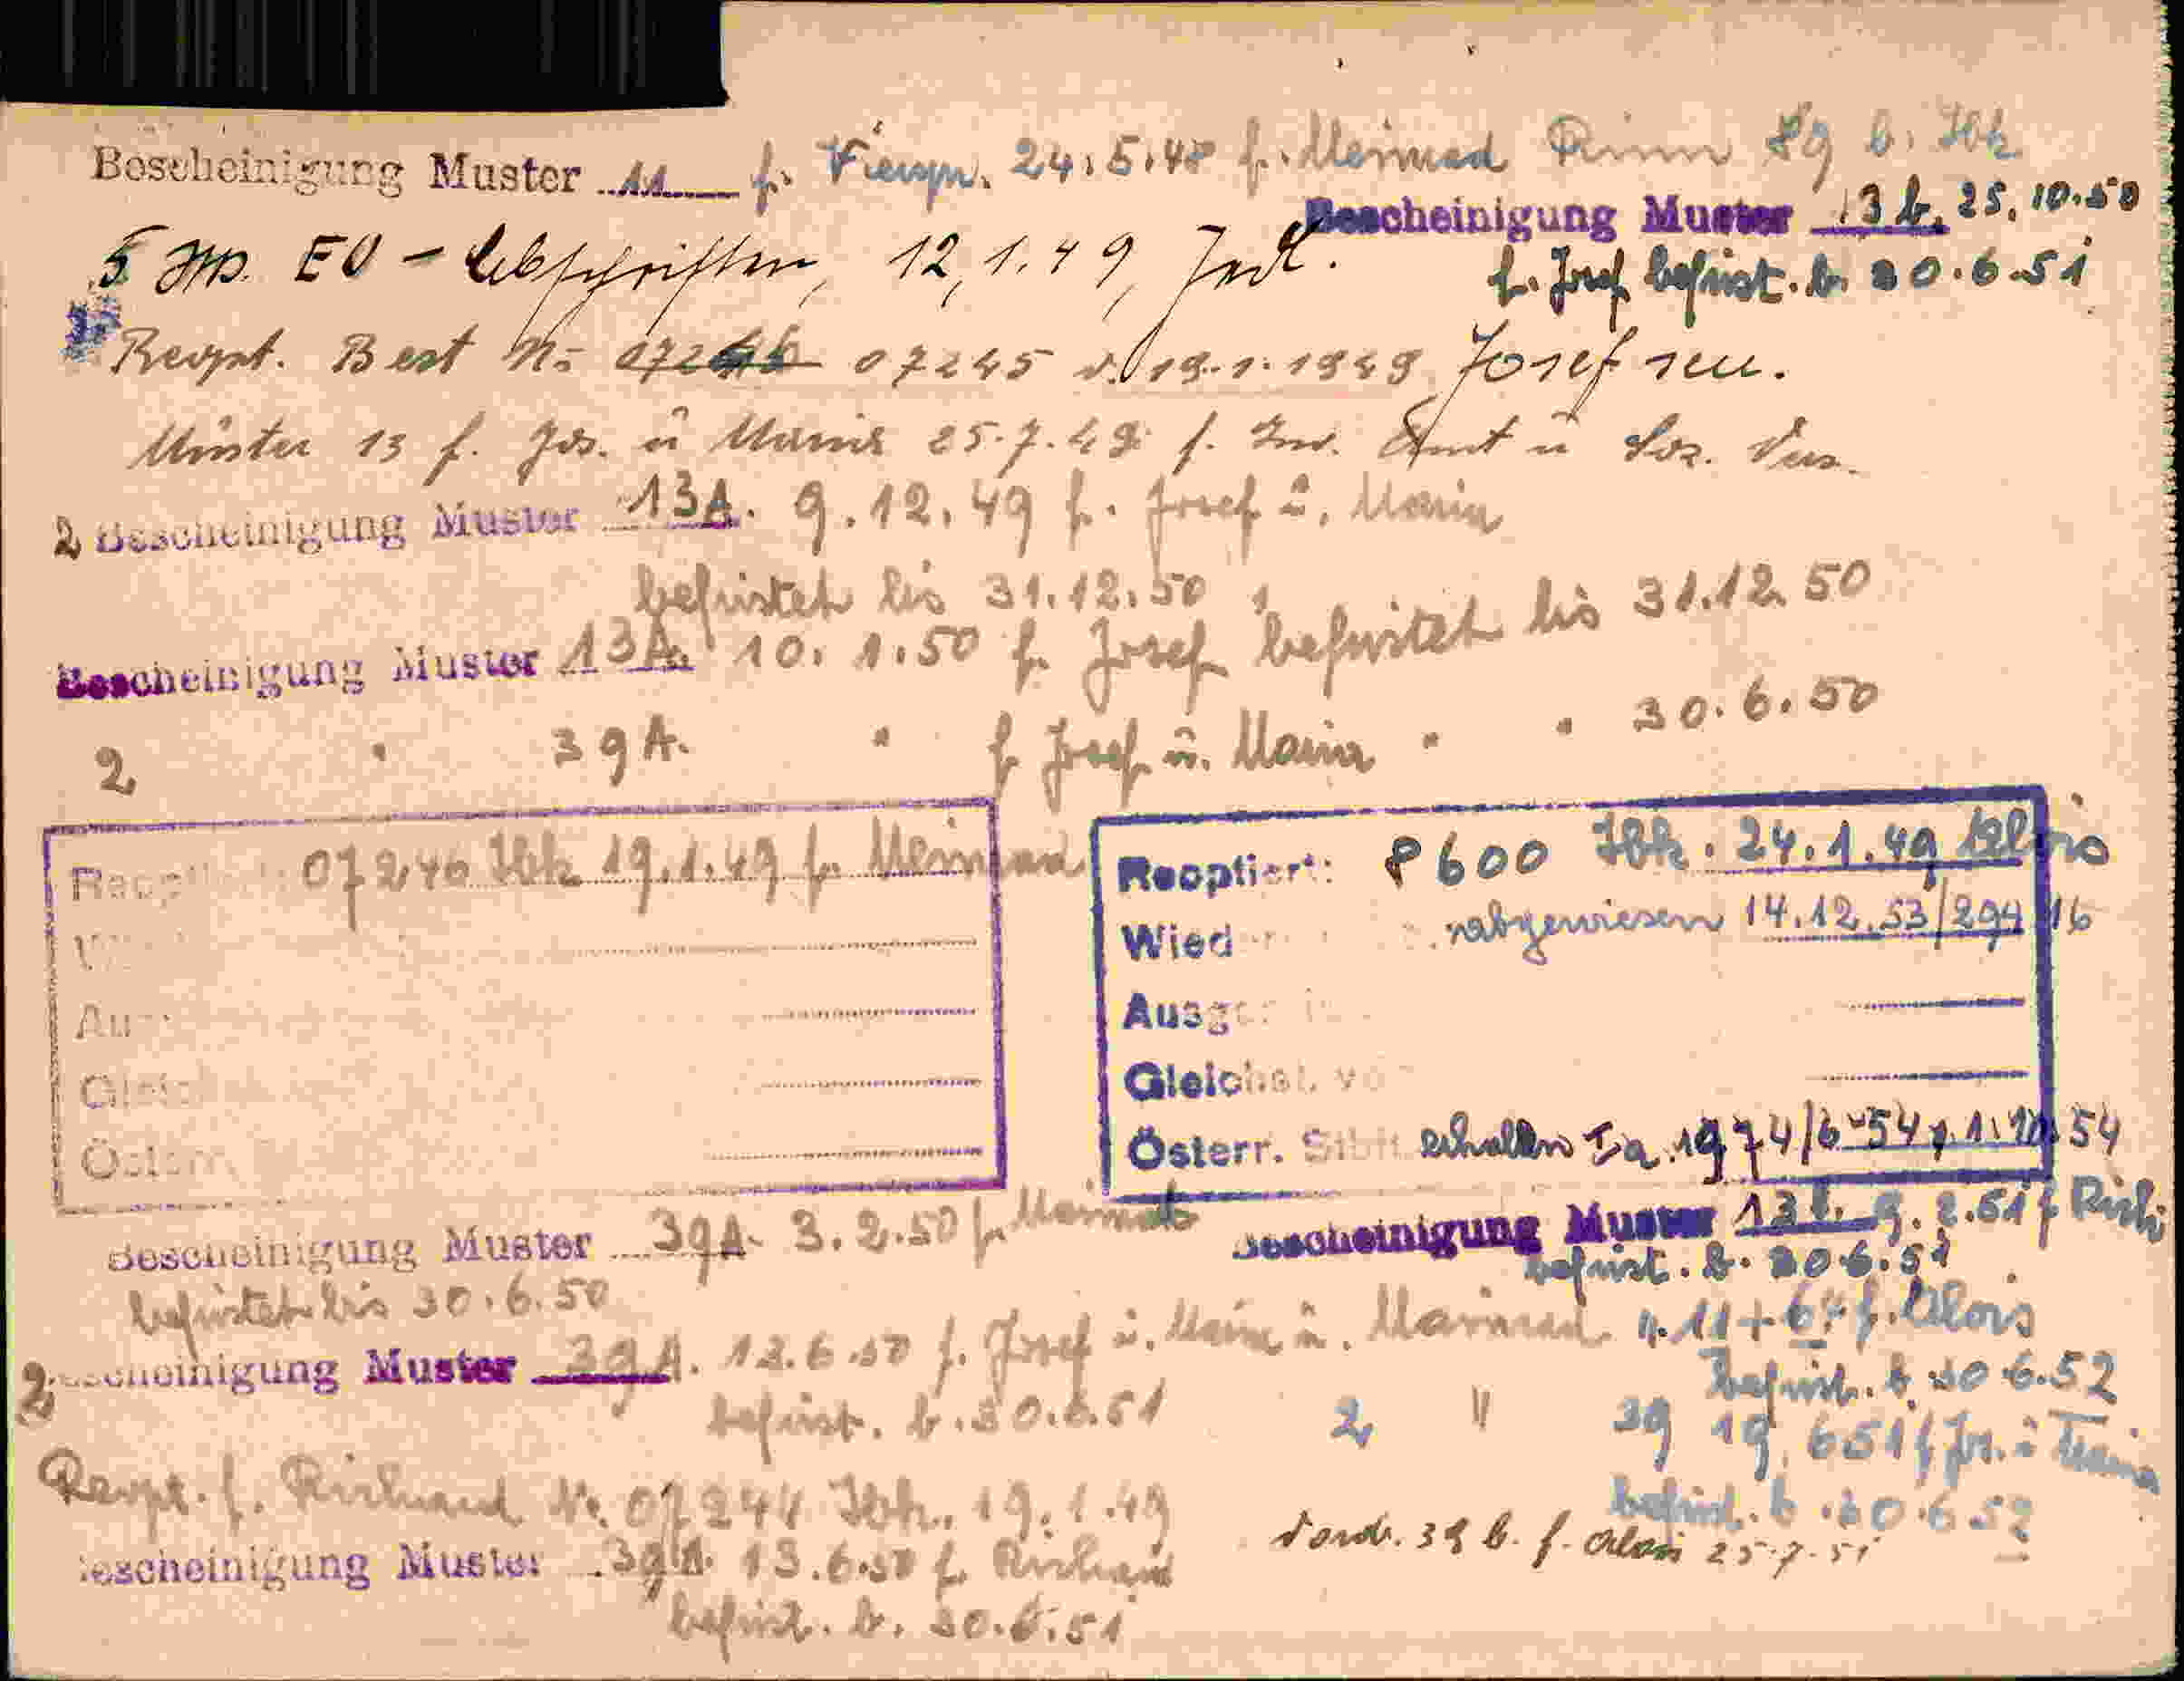 Bescheinigung Muster 11 f. 24.5.48 f. Meinrad Rinn b. Ibk
Bescheinigung Muster 13 b. 25.10.50
f. Josef befrist. b. 30.6.51
5 EO - Abschriften, 12.1.49,
Reopt. Best No 07245 v. 19.1.1949 Josef sen.
Muster 13 f. Jos. u Maria 25.7.49 f. Amt u Soz. Vers.
2 Bescheinigung Muster 13A. 9.12.49 f. Josef u. Maria
befristet bis 31.12.50
Bescheinigung Muster 13A. 10.1.50 f. Josef befristet bis 31.12.50
2 " 39A. " f Josef u. Maria " " 30.6.50
Reopti 07246 Ibk 19.1.49 f. Meinrad
Reoptiert: 8600 Ibk. 24.1.49 Alois
Wied abgewiesen 14.12.53/294/16
Gleichst. v
Österr. Stb erhalten Ia. 1974/6-54 v. 1.10.54
Bescheinigung Muster 39A. 3.2.50 f. Meinrad
befristet bis 30.6.50
Bescheinigung Muster 13b. 9.2.51 f Rich
befrist. b. 30.6.51
2 Bescheinigung Muster 39A. 12.6.50 f. Josef u. Maria u. Meinrad
befrist. b. 30.6.51
11 + f. Alois
befrist. b. 30.6.52
2 " 39 19.651 f Jos. u
befrist. b. 30.6.52
Reopt. f. Richard Nr. 07244 Ibk. 19.1.49
Bescheinigung Muster 39A. 13.6.50 f. Richard
befrist. b. 30.6.51
Vordr. 39 b. f. Alois 25.7.51